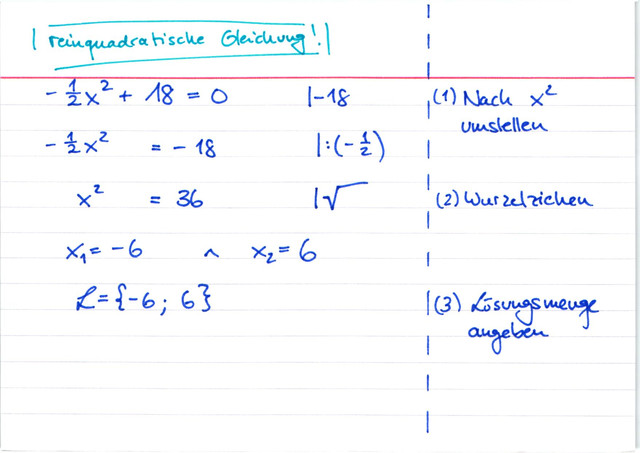 reinquadratische Gleichung!
-1/2x² + 18 = 0 |-18 (1) Nach x²
umstellen
-1/2x² = -18 |:(-1/2)
x² = 36 |√ (2) Wurzelziehen
x₁ = -6 ∧ x₂ = 6
L = {-6; 6} (3) Lösungsmenge
angeben